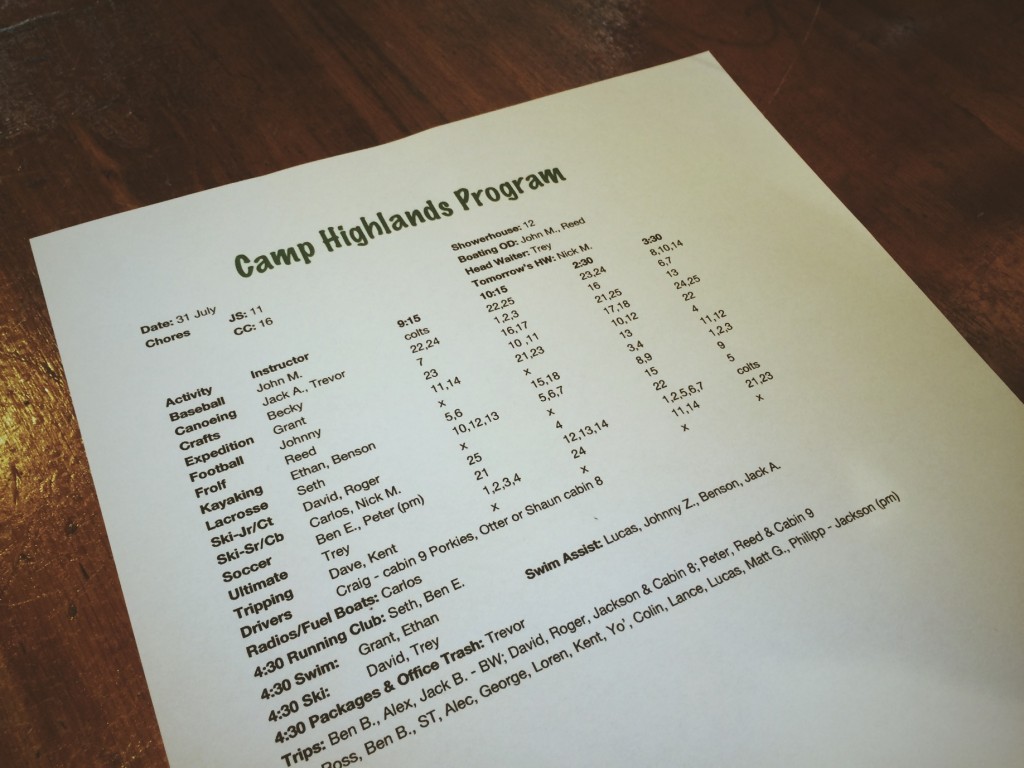 Camp Highlands Program
Showerhouse: 12
Boating OD: John M., Reed
Head Waiter: Trey
Tomorrow's HW: Nick M.
Date: 31 July JS: 11
Chores CC: 16
Activity Instructor 9:15 10:15 2:30 3:30
Baseball John M. colts 22,25 23,24 8,10,14
Canoeing Jack A., Trevor 22,24 1,2,3 16 6,7
Crafts Becky 7 16,17 21,25 13
Expedition Grant 23 10 ,11 17,18 24,25
Football Johnny 11,14 21,23 10,12 22
Frolf Reed x x 13 4
Kayaking Ethan, Benson 5,6 15,18 3,4 11,12
Lacrosse Seth 10,12,13 5,6,7 8,9 1,2,3
Ski-Jr/Ct David, Roger x x 15 9
Ski-Sr/Cb Carlos, Nick M. 25 4 22 5
Soccer Ben E., Peter (pm) 21 12,13,14 1,2,5,6,7 colts
Ultimate Trey 1,2,3,4 24 11,14 21,23
Tripping Dave, Kent x x x x
Drivers Craig - cabin 9 Porkies, Otter or Shaun cabin 8
Radios/Fuel Boats: Carlos
4:30 Running Club: Seth, Ben E.
4:30 Swim: Grant, Ethan Swim Assist: Lucas, Johnny Z., Benson, Jack A.
4:30 Ski: David, Trey
4:30 Packages & Office Trash: Trevor
Trips: Ben B., Alex, Jack B. - BW; David, Roger, Jackson & Cabin 8; Peter, Reed & Cabin 9
Ross, Ben B., ST, Alec, George, Loren, Kent, Yo', Colin, Lance, Lucas, Matt G., Philipp - Jackson (pm)